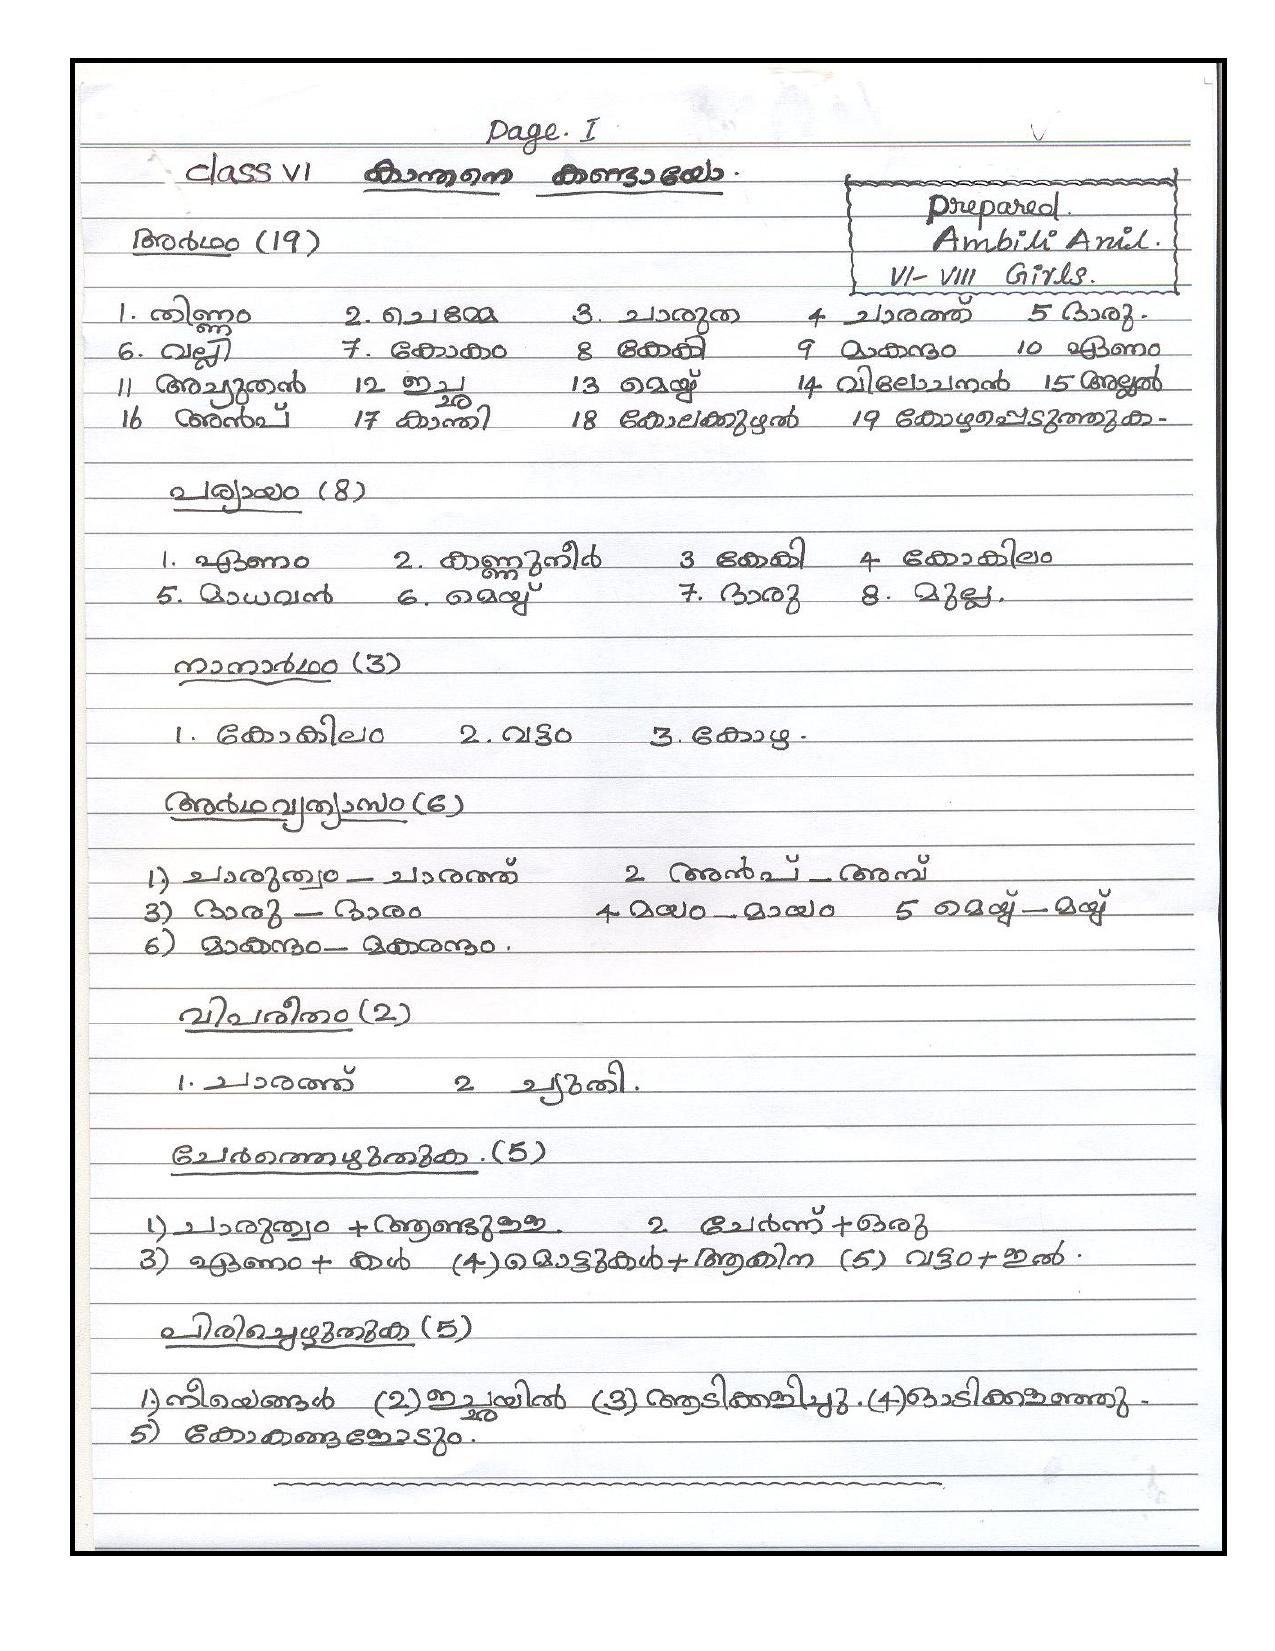 Page. I
Class VI കാന്തനെ കണ്ടായോ.
prepared.
Ambili Anil.
VI- VIII Girls.
അർഥം (19)
1. തിണ്ണം 2. ചെമ്മേ 3. ചാരുത 4 ചാരത്ത് 5 ദാരു.
6. വല്ലി 7. കോകം 8 കേകി 9 മാകന്ദം 10 ഏണം
11 അച്യുതൻ 12 ഇച്ഛ 13 മെയ്യ് 14 വിലോചനൻ 15 അല്ലൽ
16 അൻപ് 17 കാന്തി 18 കോലക്കുഴൽ 19 കോഴപ്പെടുത്തുക-
പര്യായം (8)
1. ഏണം 2. കണ്ണുനീർ 3 കേകി 4 കോകിലം
5. മാധവൻ 6. മെയ്യ് 7. ദാരു 8. മുല്ല.
നാനാർഥം (3)
1. കോകിലം 2. വട്ടം 3. കോഴ.
അർഥവ്യത്യാസം (6)
1) ചാരുത്വം - ചാരത്ത് 2 അൻപ് - അമ്പ്
3) ദാരു - ദാരം 4 മയം - മായം 5 മെയ്യ് - മയ്യ്
6) മാകന്ദം - മകരന്ദം.
വിപരീതം (2)
1. ചാരത്ത് 2 ച്യുതി.
ചേർത്തെഴുതുക. (5)
1) ചാരുത്വം + ആണ്ടുള്ള. 2 ചേർന്ന് + ഒരു
3) ഏണം + കൾ (4) മൊട്ടുകൾ + ആകിന (5) വട്ടം + ഇൽ.
പിരിച്ചെഴുതുക (5)
1) നീയെങ്ങൾ (2) ഇച്ഛയിൽ (3) ആടിക്കളിച്ചു. (4) ഓടിക്കളഞ്ഞു-
5) കോകങ്ങളോടും.